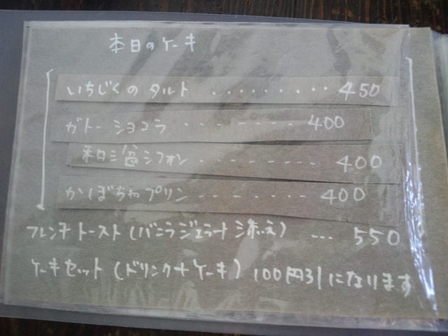 本日のケーキ
いちじくのタルト ・・・・・・・・・ 450
ガトーショコラ ・・・・・・・・ 400
シフォン ・・・・・・・・ 400
かぼちゃプリン ・・・・・・・・ 400
フレンチトースト(バニラジェラート添え) ・・・ 550
ケーキセット(ドリンク+ケーキ) 100円引になります